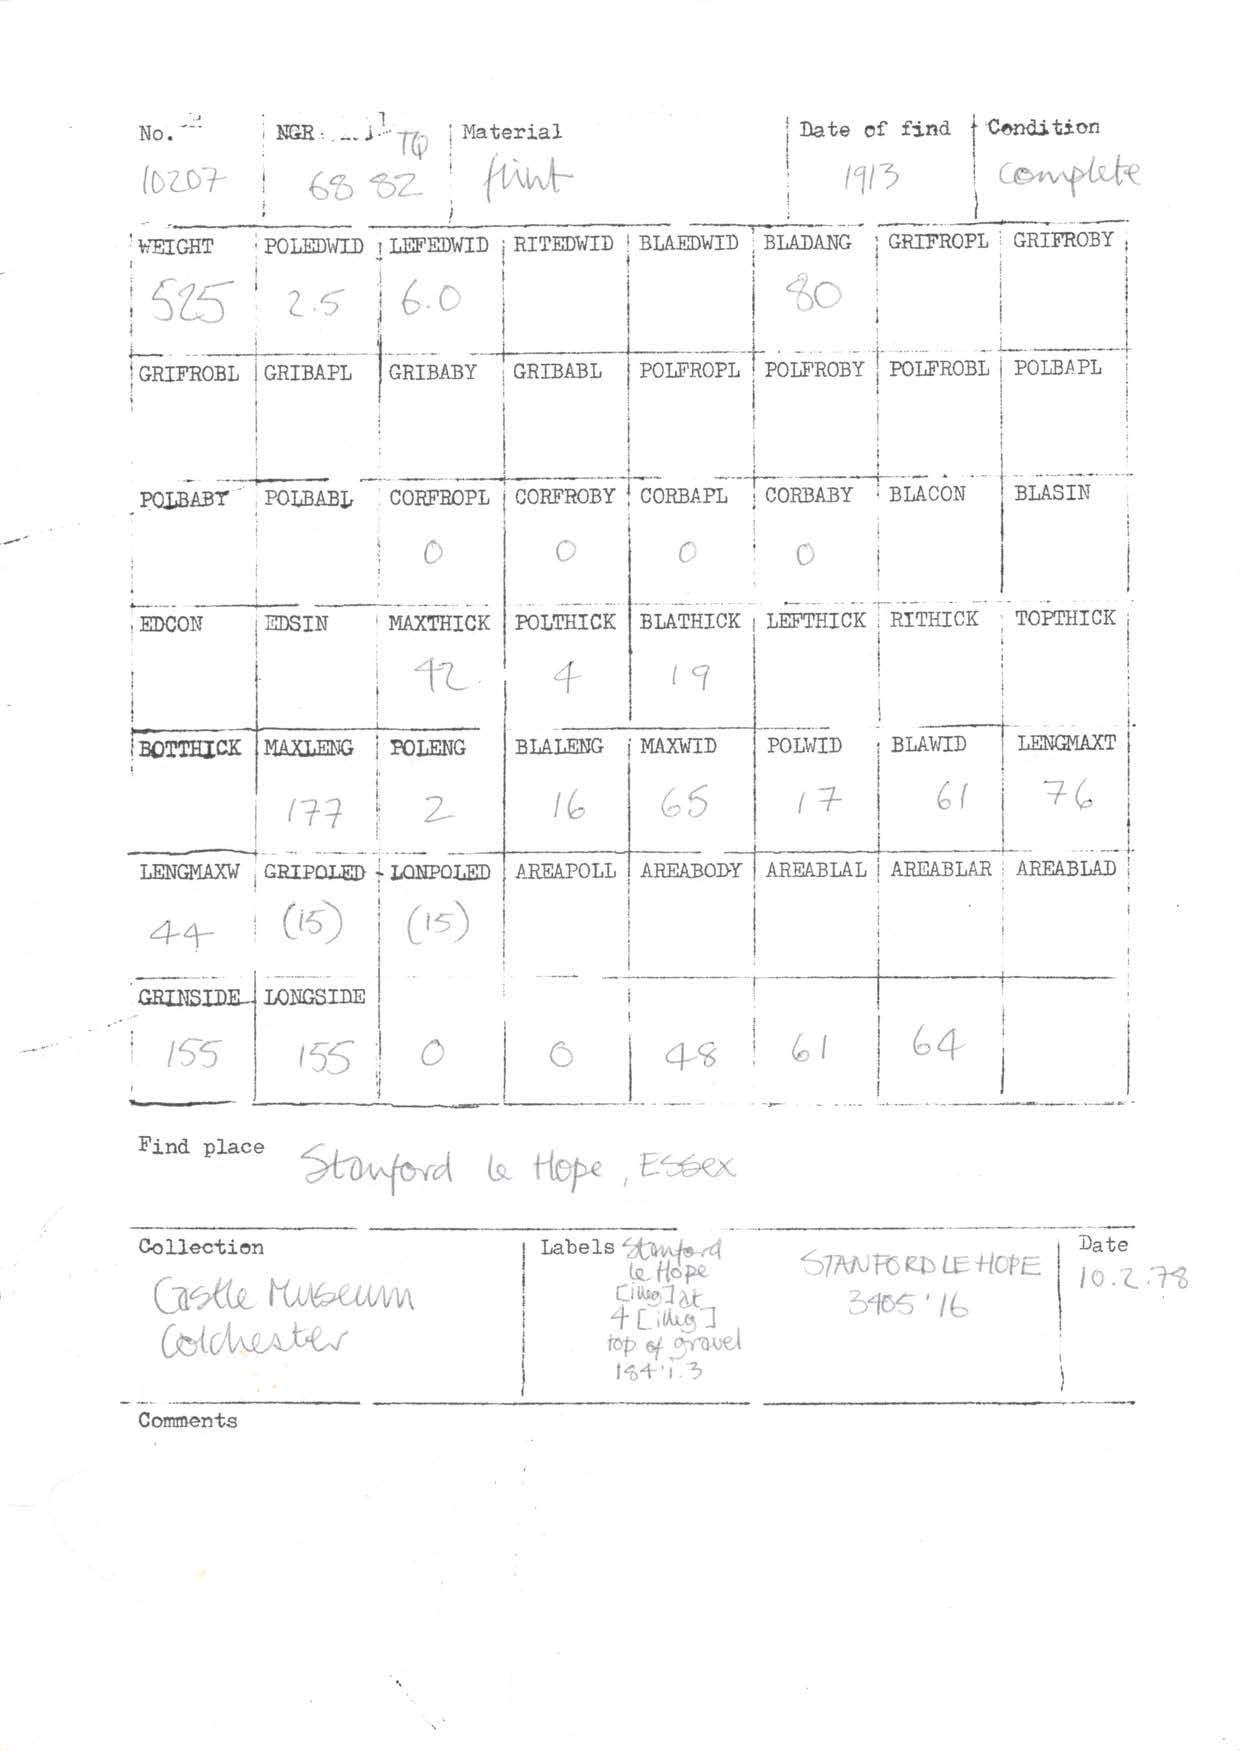 No. NGR TQ Material Date of find Condition
10207 68 82 flint 1913 complete
WEIGHT POLEDWID LEFEDWID RITEDWID BLAEDWID BLADANG GRIFROPL GRIFROBY
525 2.5 6.0 80
GRIFROBL GRIBAPL GRIBABY GRIBABL POLFROPL POLFROBY POLFROBL POLBAPL
POLBABY POLBABL CORFROPL CORFROBY CORBAPL CORBABY BLACON BLASIN
0 0 0 0
EDCON EDSIN MAXTHICK POLTHICK BLATHICK LEFTHICK RITHICK TOPTHICK
42 4 19
BOTTHICK MAXLENG POLENG BLALENG MAXWID POLWID BLAWID LENGMAXT
177 2 16 65 17 61 76
LENGMAXW GRIPOLED LONPOLED AREAPOLL AREABODY AREABLAL AREABLAR AREABLAD
44 (15) (15)
GRINSIDE LONGSIDE
155 155 0 0 48 61 64
Find place Stanford le Hope, Essex
Collection
Castle Museum
Colchester
Labels Stanford
le Hope
[illeg] at
4 [illeg]
top of gravel
184.1.3
STANFORD LE HOPE
3405'16
Date
10.2.78
Comments